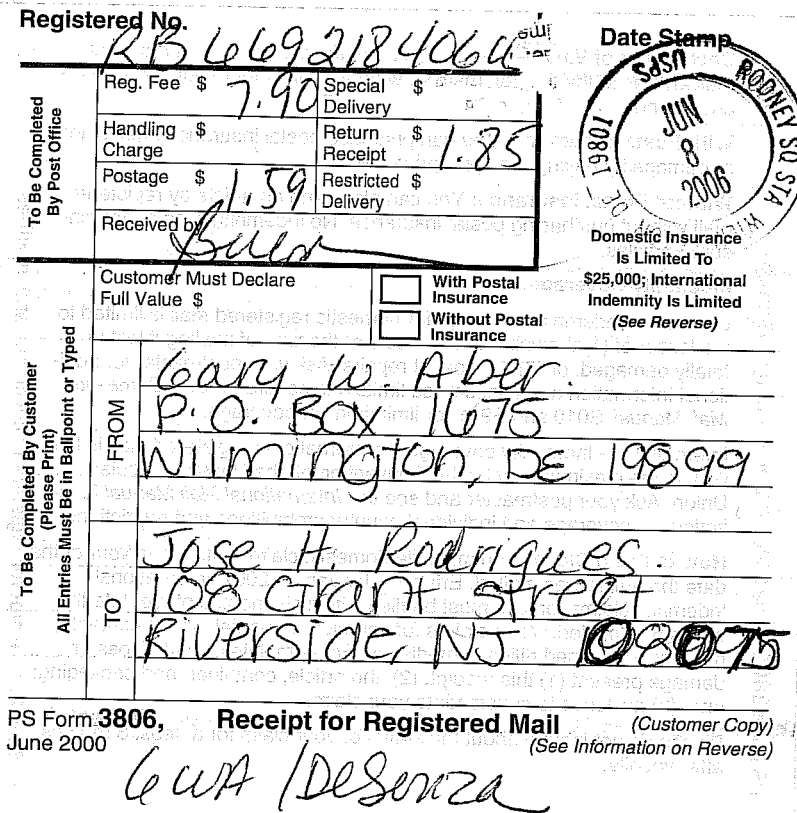 Registered No.
RB669218406U
Date Stamp
To Be Completed
By Post Office
Reg. Fee $ 7.90
Special Delivery $
Handling Charge $
Return Receipt $ 1.85
Postage $ 1.59
Restricted Delivery $
Received by
USPS
RODNEY SQ STA
JUN
8
2006
DE 19801
Domestic Insurance
Is Limited To
$25,000; International
Indemnity Is Limited
(See Reverse)
Customer Must Declare
Full Value $
With Postal
Insurance
Without Postal
Insurance
To Be Completed By Customer
(Please Print)
All Entries Must Be in Ballpoint or Typed
FROM
Gary W. Aber.
P.O. Box 1675
Wilmington, DE 19899
TO
Jose H. Rodrigues
108 Grant street
Riverside, NJ 08075
PS Form 3806,
June 2000
Receipt for Registered Mail
(Customer Copy)
(See Information on Reverse)
GWA / DeSouza